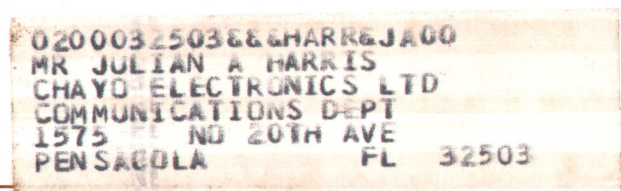 0200032503&&&HARR&JA00
MR JULIAN A HARRIS
CHAYO ELECTRONICS LTD
COMMUNICATIONS DEPT
1575 NO 20TH AVE
PENSACOLA FL 32503